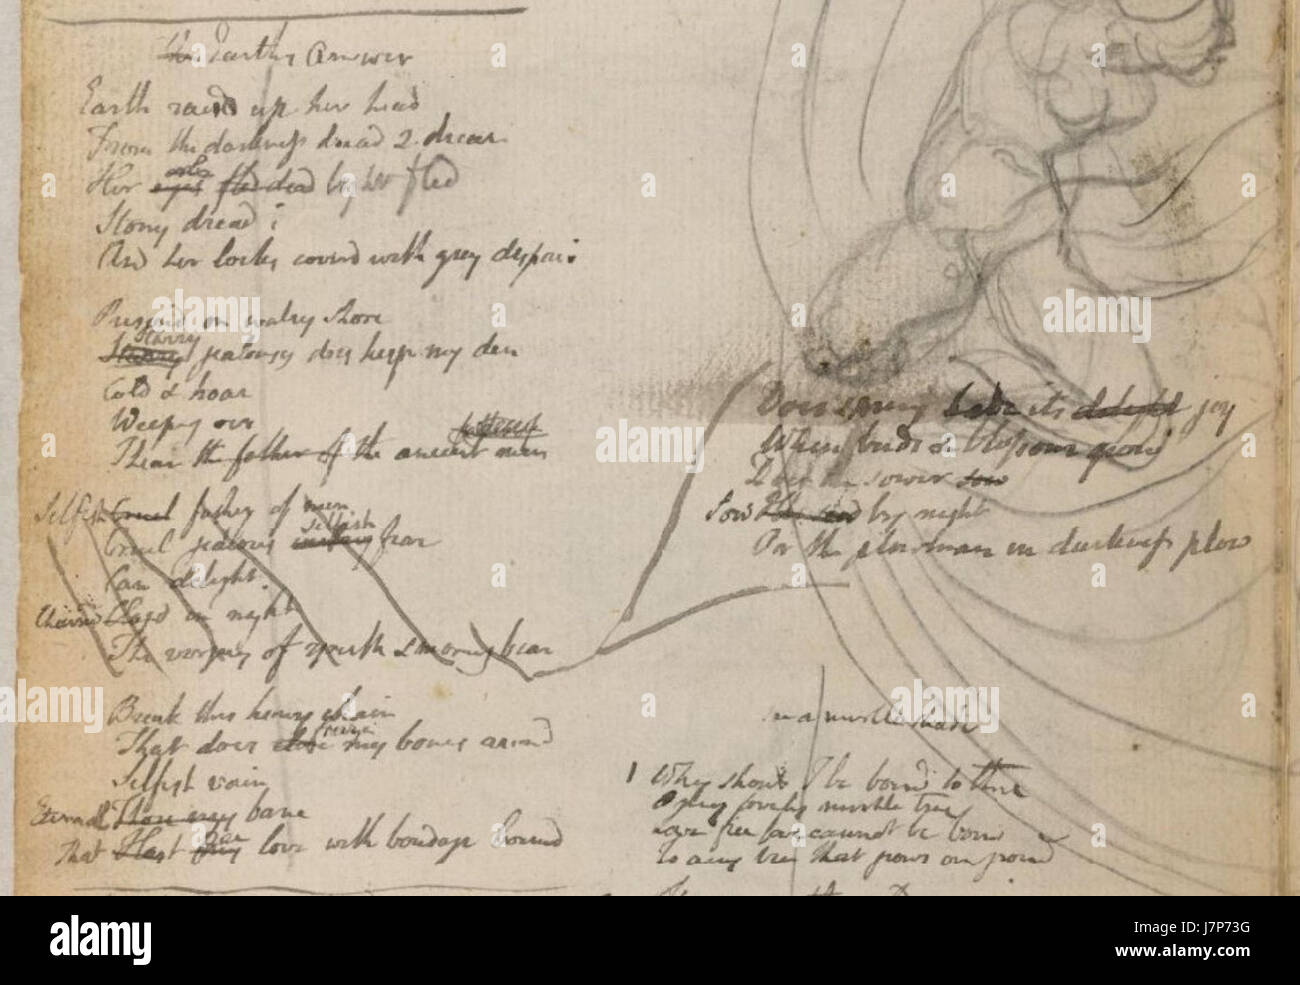 The Earths Answer
Earth raisd up her head
From the darkness dread & drear
Her eyes orbs fled dead light fled
Stony dread!
And her locks coverd with grey despair
Prisond on watry shore
Starry jealousy does keep my den
Cold & hoar
Weeping oer
I hear the father of the ancient men
Selfish Cruel father of men
Cruel jealous selfish fear
Can delight
Chaind in night
The virgins of youth & morning bear
Does spring hide its delight joy
When buds & blossoms grow
Does the sower sow
Sow by night
Or the plowman in darkness plow
Break this heavy chain
That does close freeze my bones around
Selfish vain
Eternal Thou my bane
That Hast my free love with bondage bound
in a mirtle shade
1 Why should I be bound to thee
O my lovely mirtle tree
Love free love cannot be bound
To any tree that grows on ground
alamy
Image ID: J7P73G
www.alamy.com